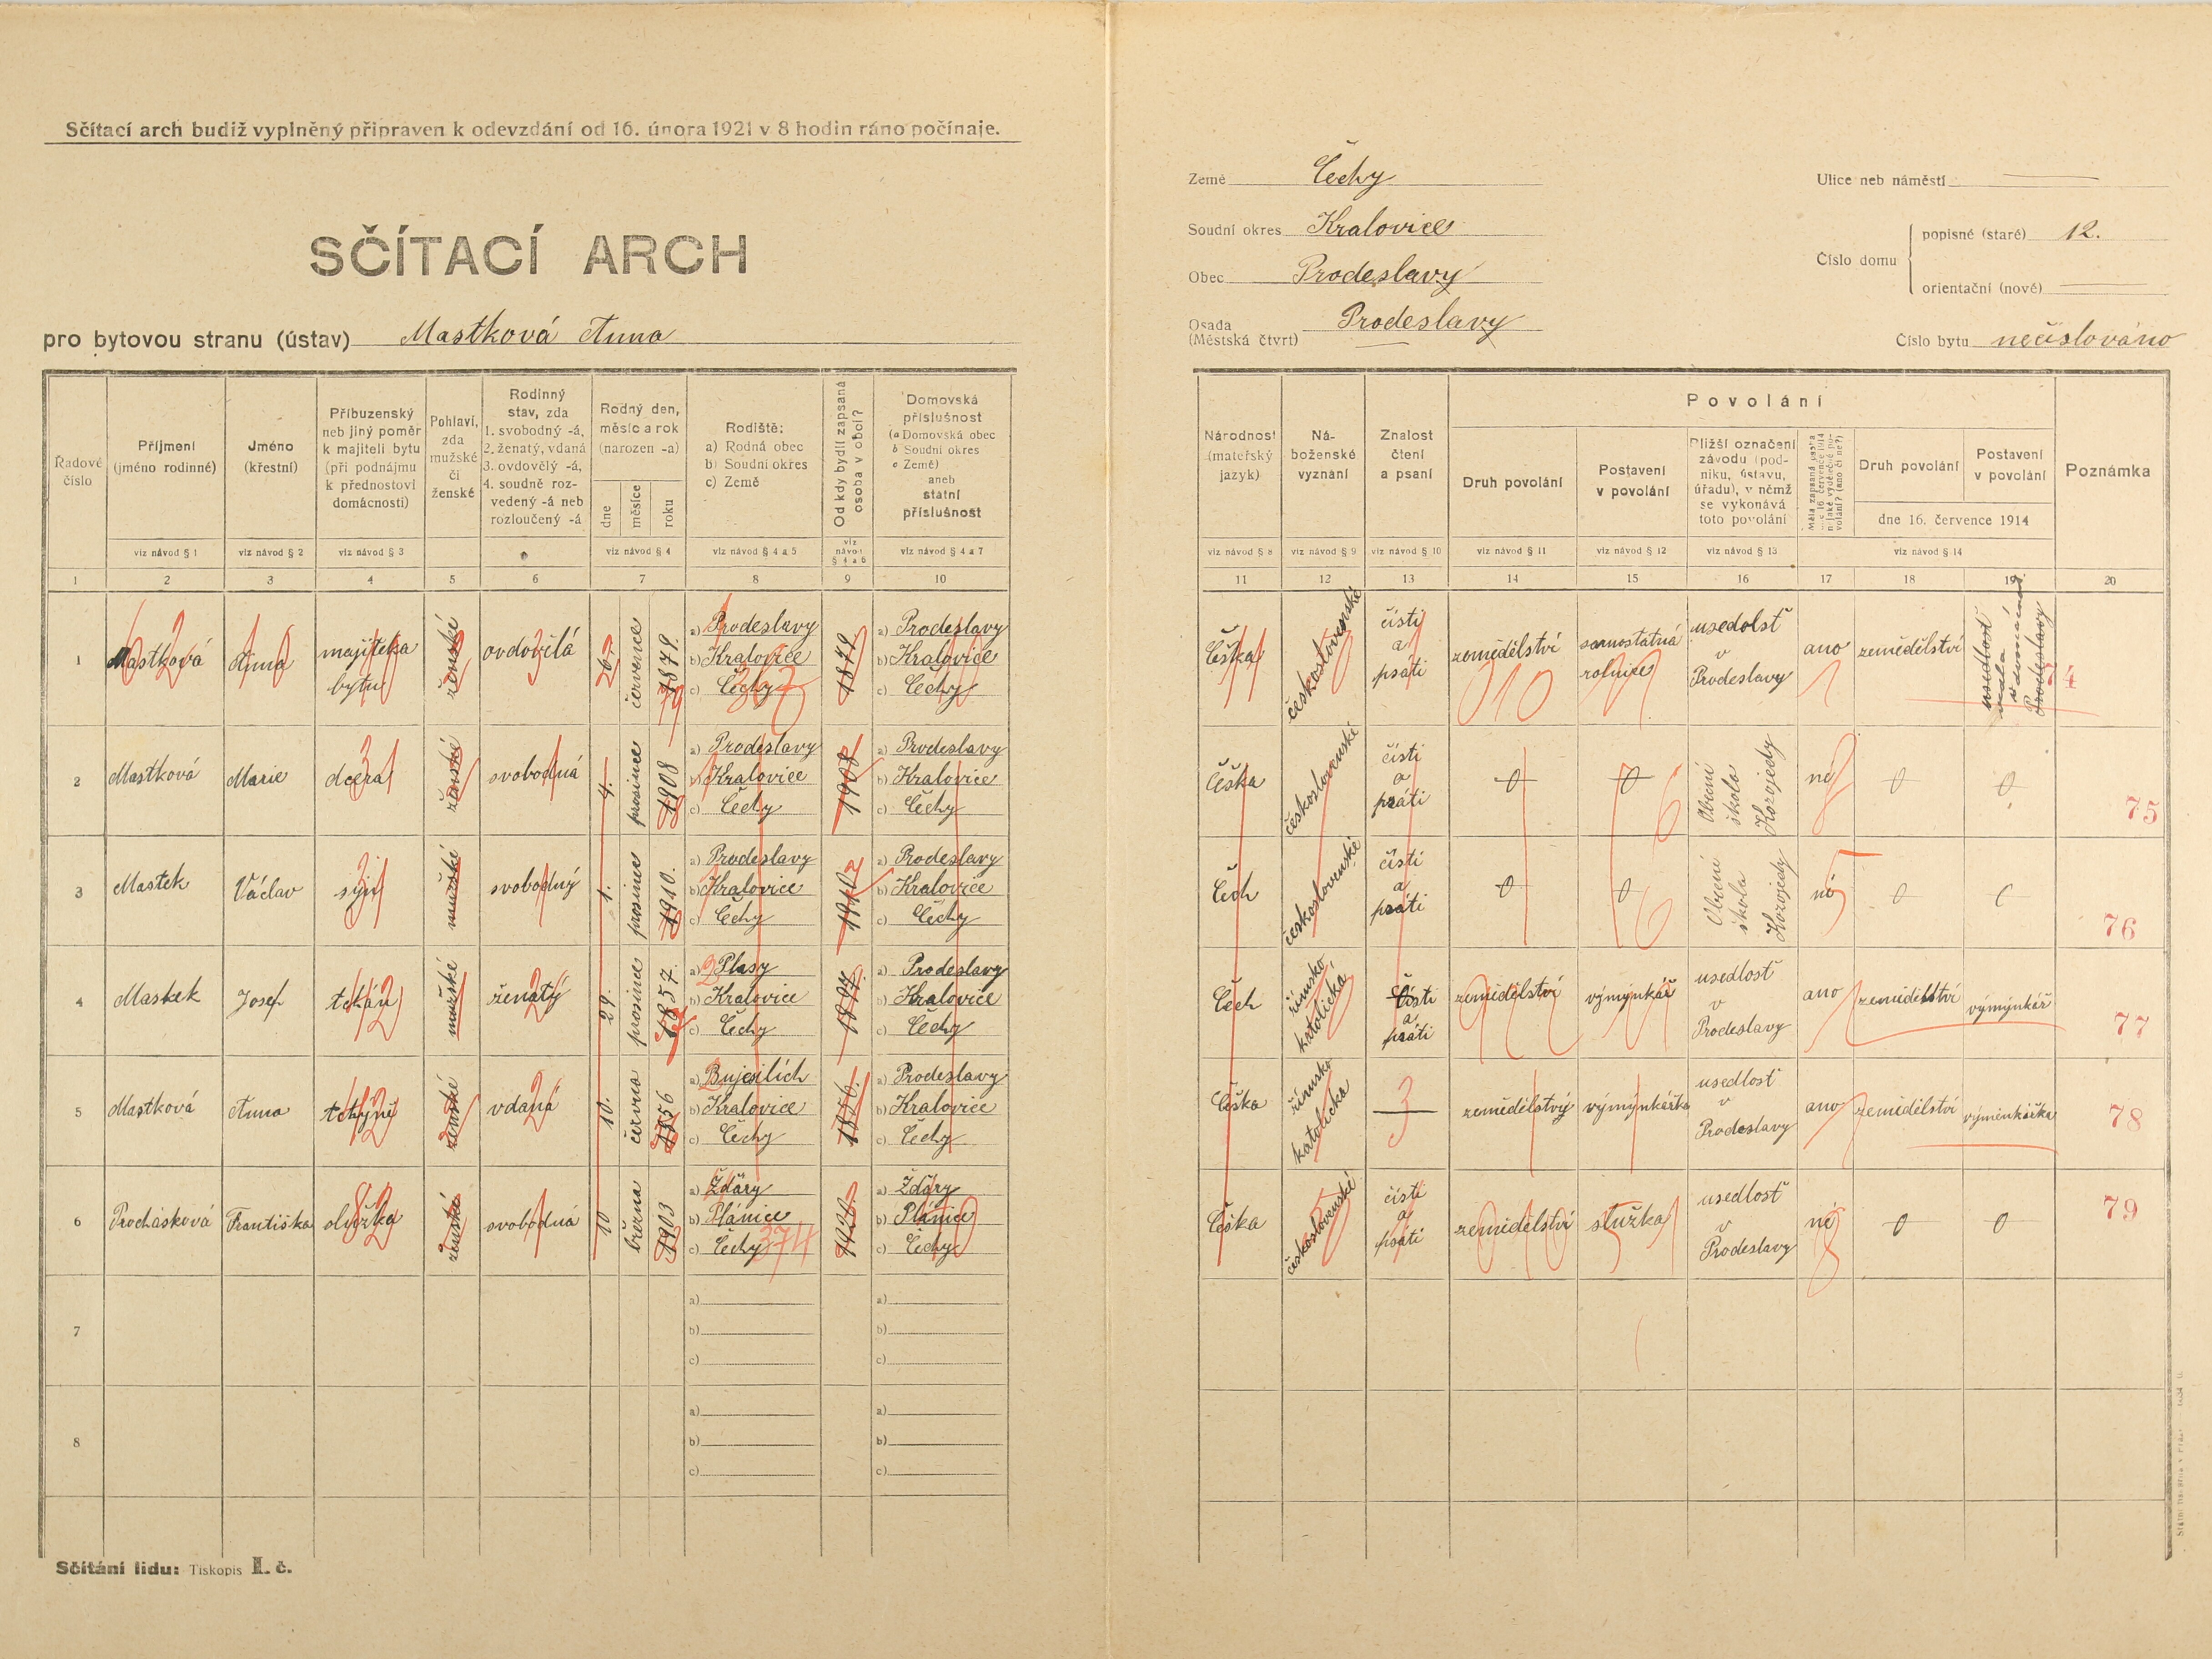 Sčítací arch budiž vyplněný připraven k odevzdání od 16. února 1921 v 8 hodin ráno počínaje.
SČÍTACÍ ARCH
pro bytovou stranu (ústav) Mastková Anna
Země Čechy
Soudní okres Kralovice
Obec Prodeslavy
Osada (Městská čtvrť) Prodeslavy
Ulice neb náměstí
Číslo domu
popisné (staré) 12.
orientační (nové)
Číslo bytu nečíslováno
Řadové číslo
Příjmení (jméno rodinné)
Jméno (křestní)
Příbuzenský neb jiný poměr k majiteli bytu (při podnájmu k přednostovi domácnosti)
Pohlaví, zda mužské či ženské
Rodinný stav, zda 1. svobodný -á, 2. ženatý, vdaná 3. ovdovělý -á, 4. soudně rozvedený -á neb rozloučený -á
Rodný den, měsíc a rok (narozen -a)
dne měsíce roku
Rodiště: a) Rodná obec b) Soudní okres c) Země
Od kdy bydlí zapsaná osoba v obci?
Domovská příslušnost (a Domovská obec b Soudní okres c Země) aneb státní příslušnost
viz návod § 1
viz návod § 2
viz návod § 3
viz návod § 4
viz návod § 4 a 5
viz návod § 4 a 6
viz návod § 4 a 7
1 2 3 4 5 6 7 8 9 10
Národnost (mateřský jazyk)
Náboženské vyznání
Znalost čtení a psaní
Povolání
Druh povolání
Postavení v povolání
Bližší označení závodu (podniku, ústavu, úřadu), v němž se vykonává toto povolání
Měla zapsaná osoba dne 16. července 1914 nějaké výdělečné povolání? (ano či ne?)
Druh povolání
Postavení v povolání
dne 16. července 1914
Poznámka
viz návod § 8
viz návod § 9
viz návod § 10
viz návod § 11
viz návod § 12
viz návod § 13
viz návod § 14
11 12 13 14 15 16 17 18 19 20
1 Mastková Anna majitelka bytu ženské ovdovělá 26. července
a) Prodeslavy b) Kralovice c) Čechy
a) Prodeslavy b) Kralovice c) Čechy
Češka československé čísti a psáti zemědělství samostatná rolnice usedolsť v Prodeslavy ano zemědělství
74
2 Mastková Marie dcera ženské svobodná 4. prosince 1908
a) Prodeslavy b) Kralovice c) Čechy
1908
a) Prodeslavy b) Kralovice c) Čechy
Češka československé čísti a psáti 0 0 Obecní škola Kozojedy né 0 0
75
3 Mastek Václav syn mužské svobodný 1. prosince 1910.
a) Prodeslavy b) Kralovice c) Čechy
1910
a) Prodeslavy b) Kralovice c) Čechy
Čech československé čísti a psáti 0 0 Obecní škola Kozojedy né 0 0
76
4 Mastek Josef tchán mužské ženatý 29. prosince 1857.
a) Plasy b) Kralovice c) Čechy
a) Prodeslavy b) Kralovice c) Čechy
Čech římsko katolická čísti a psáti zemědělství výmýnkář usedlosť v Prodeslavy ano zemědělství výmýnkář
77
5 Mastková Anna tchýně ženské vdaná 10. června 1856
a) Bujesilích b) Kralovice c) Čechy
1856.
a) Prodeslavy b) Kralovice c) Čechy
Češka římsko katolická zemědělstvý výmýnkářka usedlosť v Prodeslavy ano zemědělství výměnkářka
78
6 Procházková Františka služka ženské svobodná 10 března 1903
a) Žďáry b) Plánice c) Čechy 374
1920.
a) Žďáry b) Plánice c) Čechy
Češka československé čísti a psáti zemědělství služka usedlosť v Prodeslavy né 0 0
79
7
a)
b)
c)
a)
b)
c)
8
a)
b)
c)
a)
b)
c)
Sčítání lidu: Tiskopis I. č.